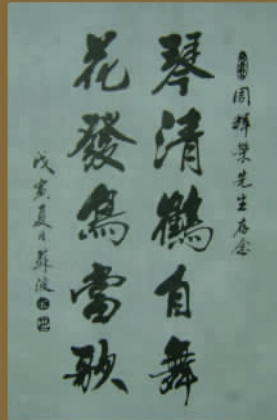 周辉荣先生存念
琴清鶴自舞
花發鳥當歌
戊寅夏月蘇波